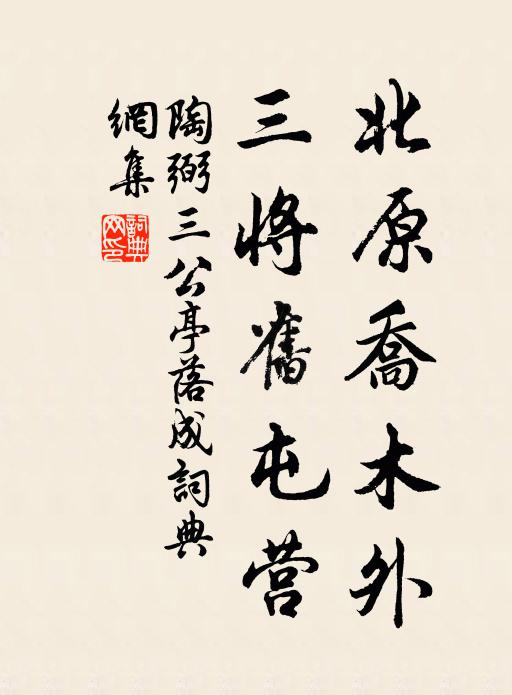 北原喬木外
三將舊屯营
陶弼三公亭落成詞典
網集
詞典網印